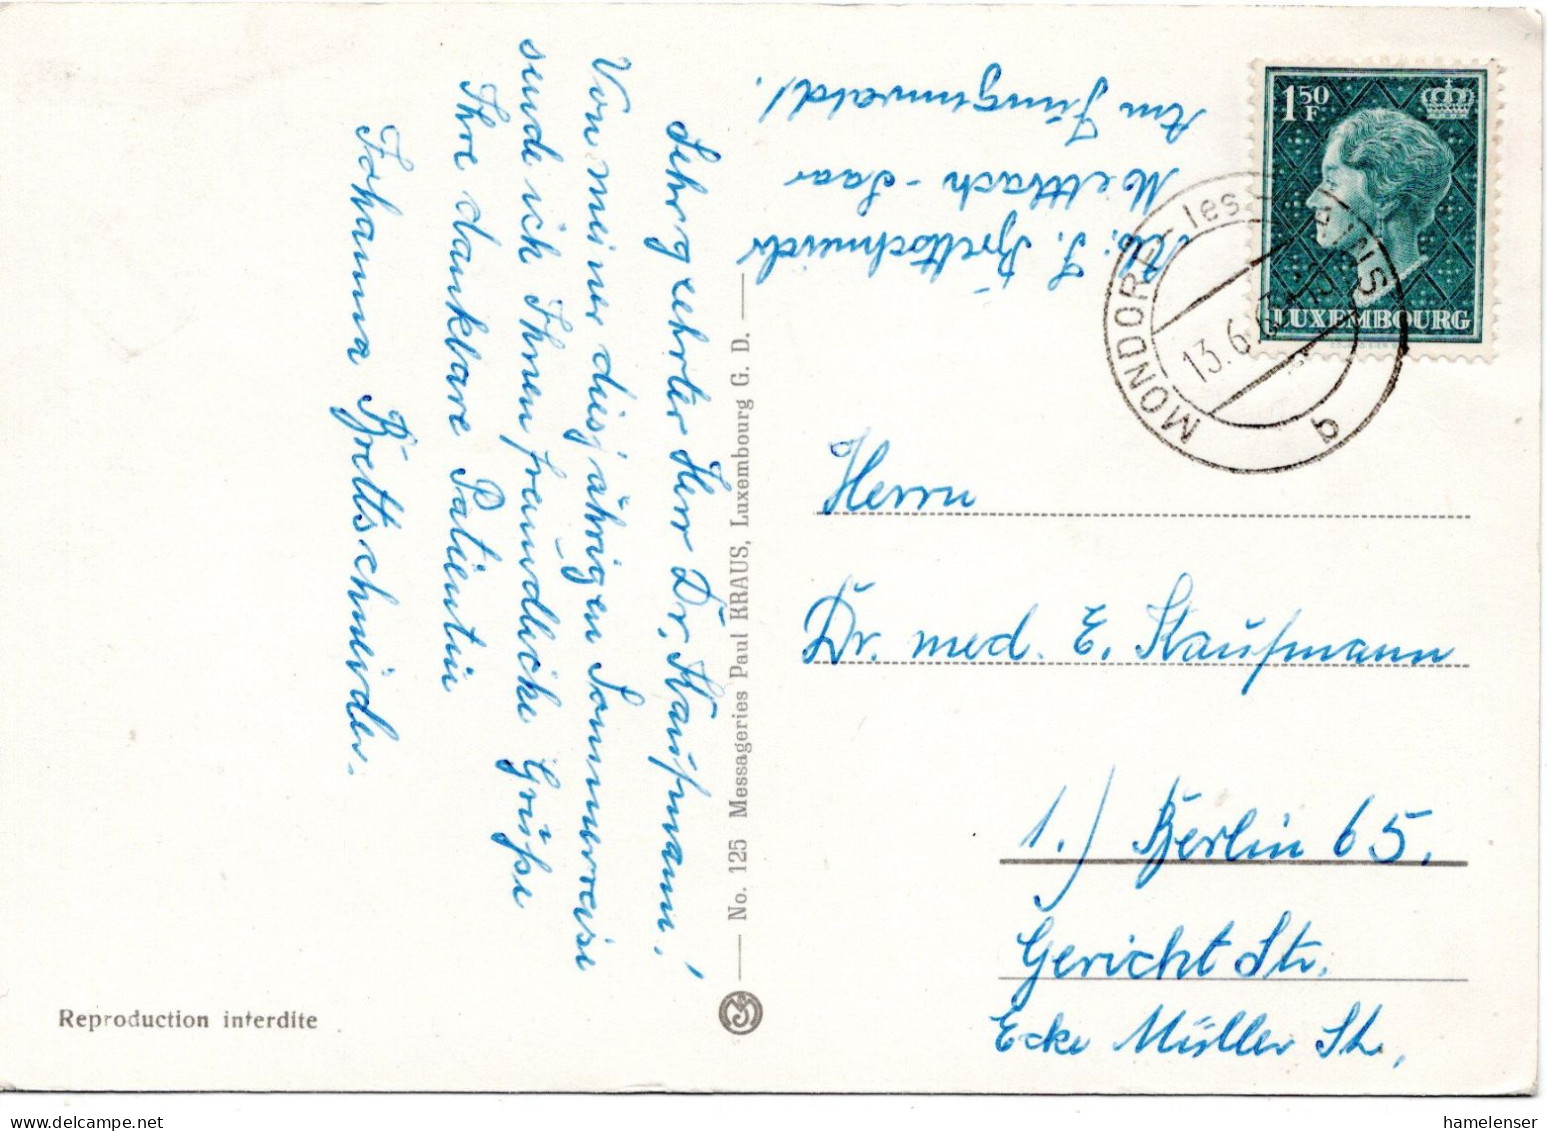 Sehr geehrter Herr Dr. Kaufmann!
Von meiner diesjährigen Sommerreise
sende ich Ihnen freundliche Grüße
Ihre dankbare Patientin
Johanna Brettschneider.
Abs: J. Brettschneider
Mettlach - Saar
Am Jüngenwald!
1,50 F
LUXEMBOURG
MONDORF-les-BAINS
13.6.6
b
Herrn
Dr. med. E. Kaufmann
1.) Berlin 65.
Gericht Str.
Ecke Müller Str.
No. 125 Messageries Paul KRAUS, Luxembourg G. D.
Reproduction interdite
hamelenser